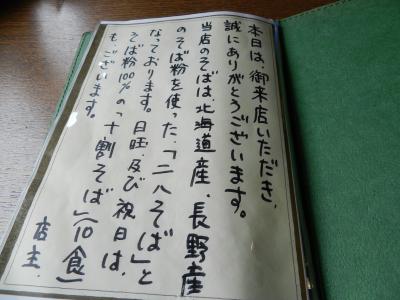 本日は、御来店いただき、
誠にありがとうございます。
当店のそばは、北海道産、長野産
のそば粉を使った、「二八そば」と
なっております。日旺、及び祝日は、
そば粉100%の「十割そば」(10食)
も、ございます。
店主.